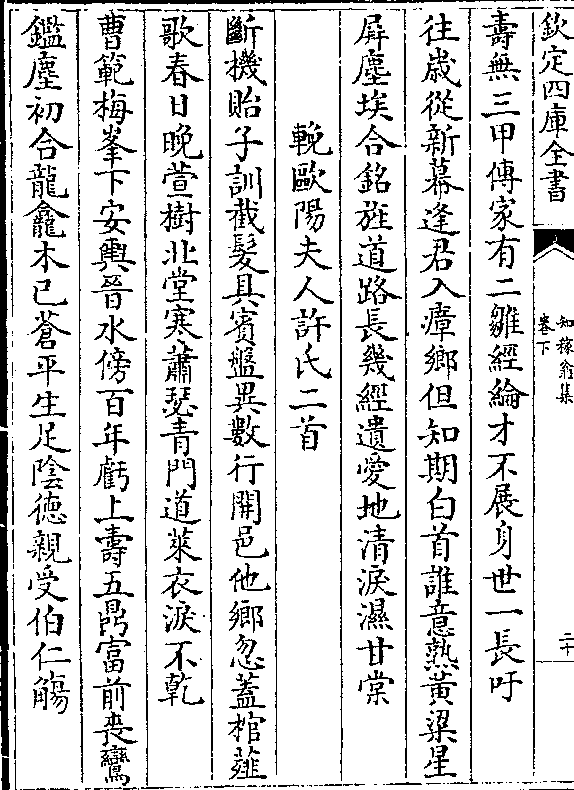 欽定四庫全書
知稼翁集
卷下
二十
壽無三甲傳家有二雛經綸才不展身世一長吁
往歲從新幕逢君入瘴鄉但知期白首誰意熟黃粱星
屏塵埃合銘旌道路長幾經遺愛地清淚濕甘棠
輓歐陽夫人許氏二首
斷機貽子訓截髮具賓盤異數行開邑他鄉忽蓋棺薤
歌春日晚萱樹北堂寒蕭瑟青門道萊衣淚不乾
曹範梅峯下安輿晉水傍百年虧上壽五鼎富前喪鸞
鑑塵初合龍龕木已蒼平生足陰德親受伯仁觴